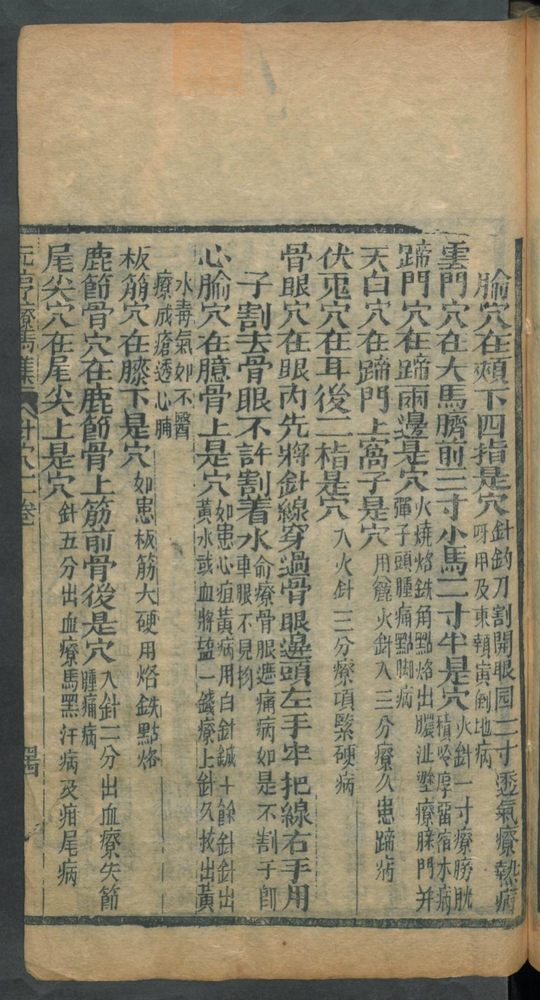 腧穴在頰下四指是穴針鈎刀割開眼圓二寸透氣療熱病呀甲及束顙寅倒地病
雲門穴在大馬臍前三寸小馬二寸半是穴火針一寸療膀胱積冷停留宿水病
蹄門穴在蹄兩邊是穴火燒烙鉄角點烙出膿沚
彈子頭腫痛點脚病
天白穴在蹄門上窩子是穴用火針入三分療久患蹄病
伏兎穴在耳後二指是穴入火針三分療項緊硬病
骨眼穴在眼內先將針線穿過骨眼邊頭左手牢把線右手用
子割去骨眼不許割着水俞療骨眼遮痛病如是不割子即車眼不見物
心腧穴在臆骨上是穴如患心疽黃病用白針鍼十餘針針出黃水或血將塩一錢療上針久抜出黃
水毒氣如不醫療成瘡透心肺
板筋穴在膝下是穴如患板筋大硬用烙鉄點烙
鹿節骨穴在鹿節骨上筋前骨後是穴入針二分出血療失節腫痛病
尾尖穴在尾尖上是穴針五分出血療馬黑汗病及疳尾病
元亨療馬集
針穴一卷